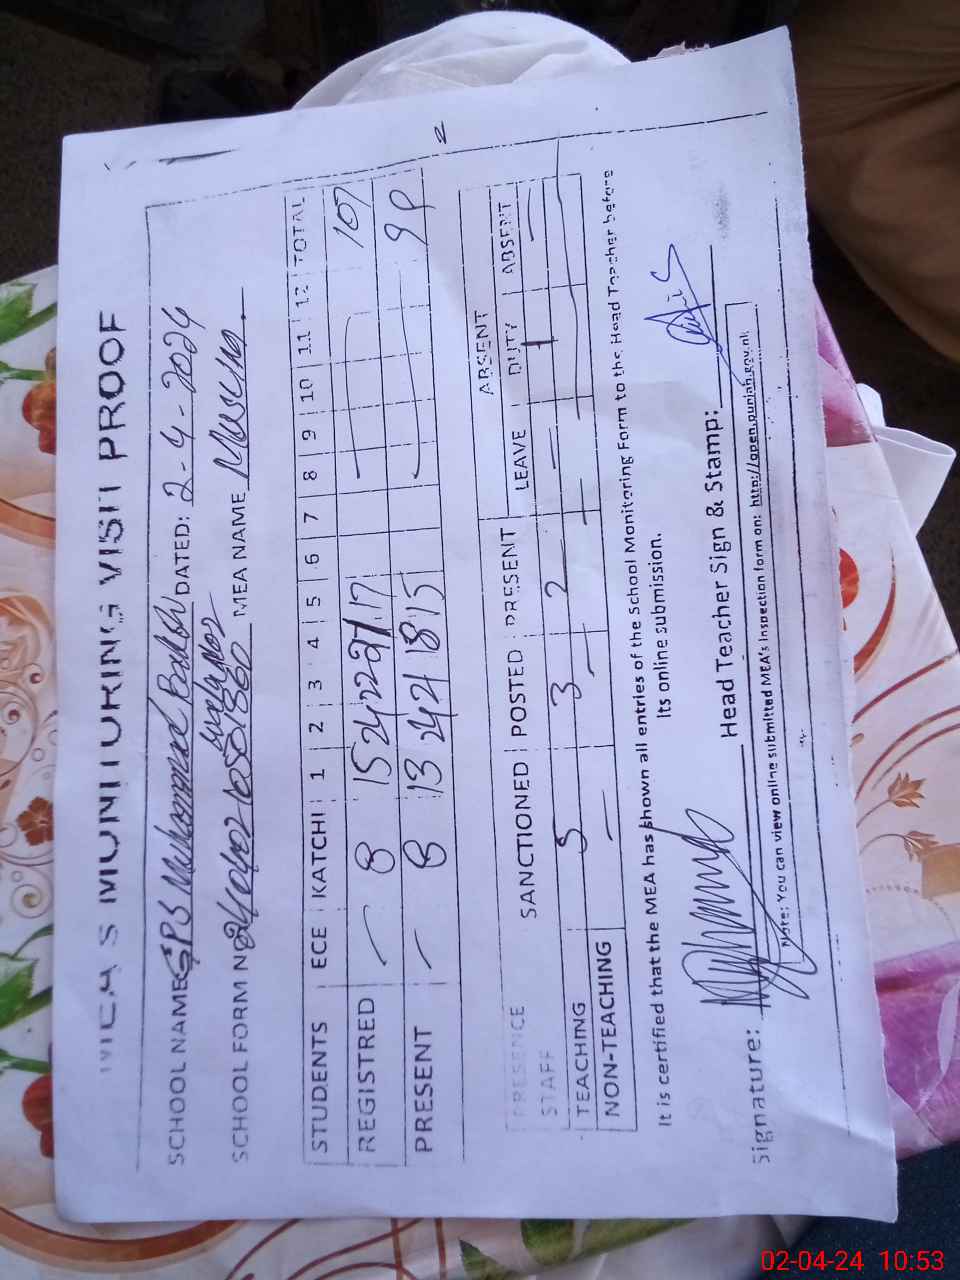 MEA'S MONITORING VISIT PROOF
SCHOOL NAME GPS Muhammad DATED: 2-4-2024
SCHOOL FORM N MEA NAME
STUDENTS ECE KATCHI 1 2 3 4 5 6 7 8 9 10 11 12 TOTAL
REGISTRED — 8 15 24 22 21 17 — 107
PRESENT — 8 13 24 21 18 15 — 99
PRESENCE ABSENT
STAFF SANCTIONED POSTED PRESENT LEAVE DUTY ABSENT
TEACHING 5 3 2 — 1 —
NON-TEACHING — — — — —
It is certified that the MEA has shown all entries of the School Monitoring Form to the Head Teacher before
Its online submission.
Signature: Head Teacher Sign & Stamp:
Note: You can view online submitted MEA's Inspection form on: http://open.punjab.gov.pk
02-04-24 10:53